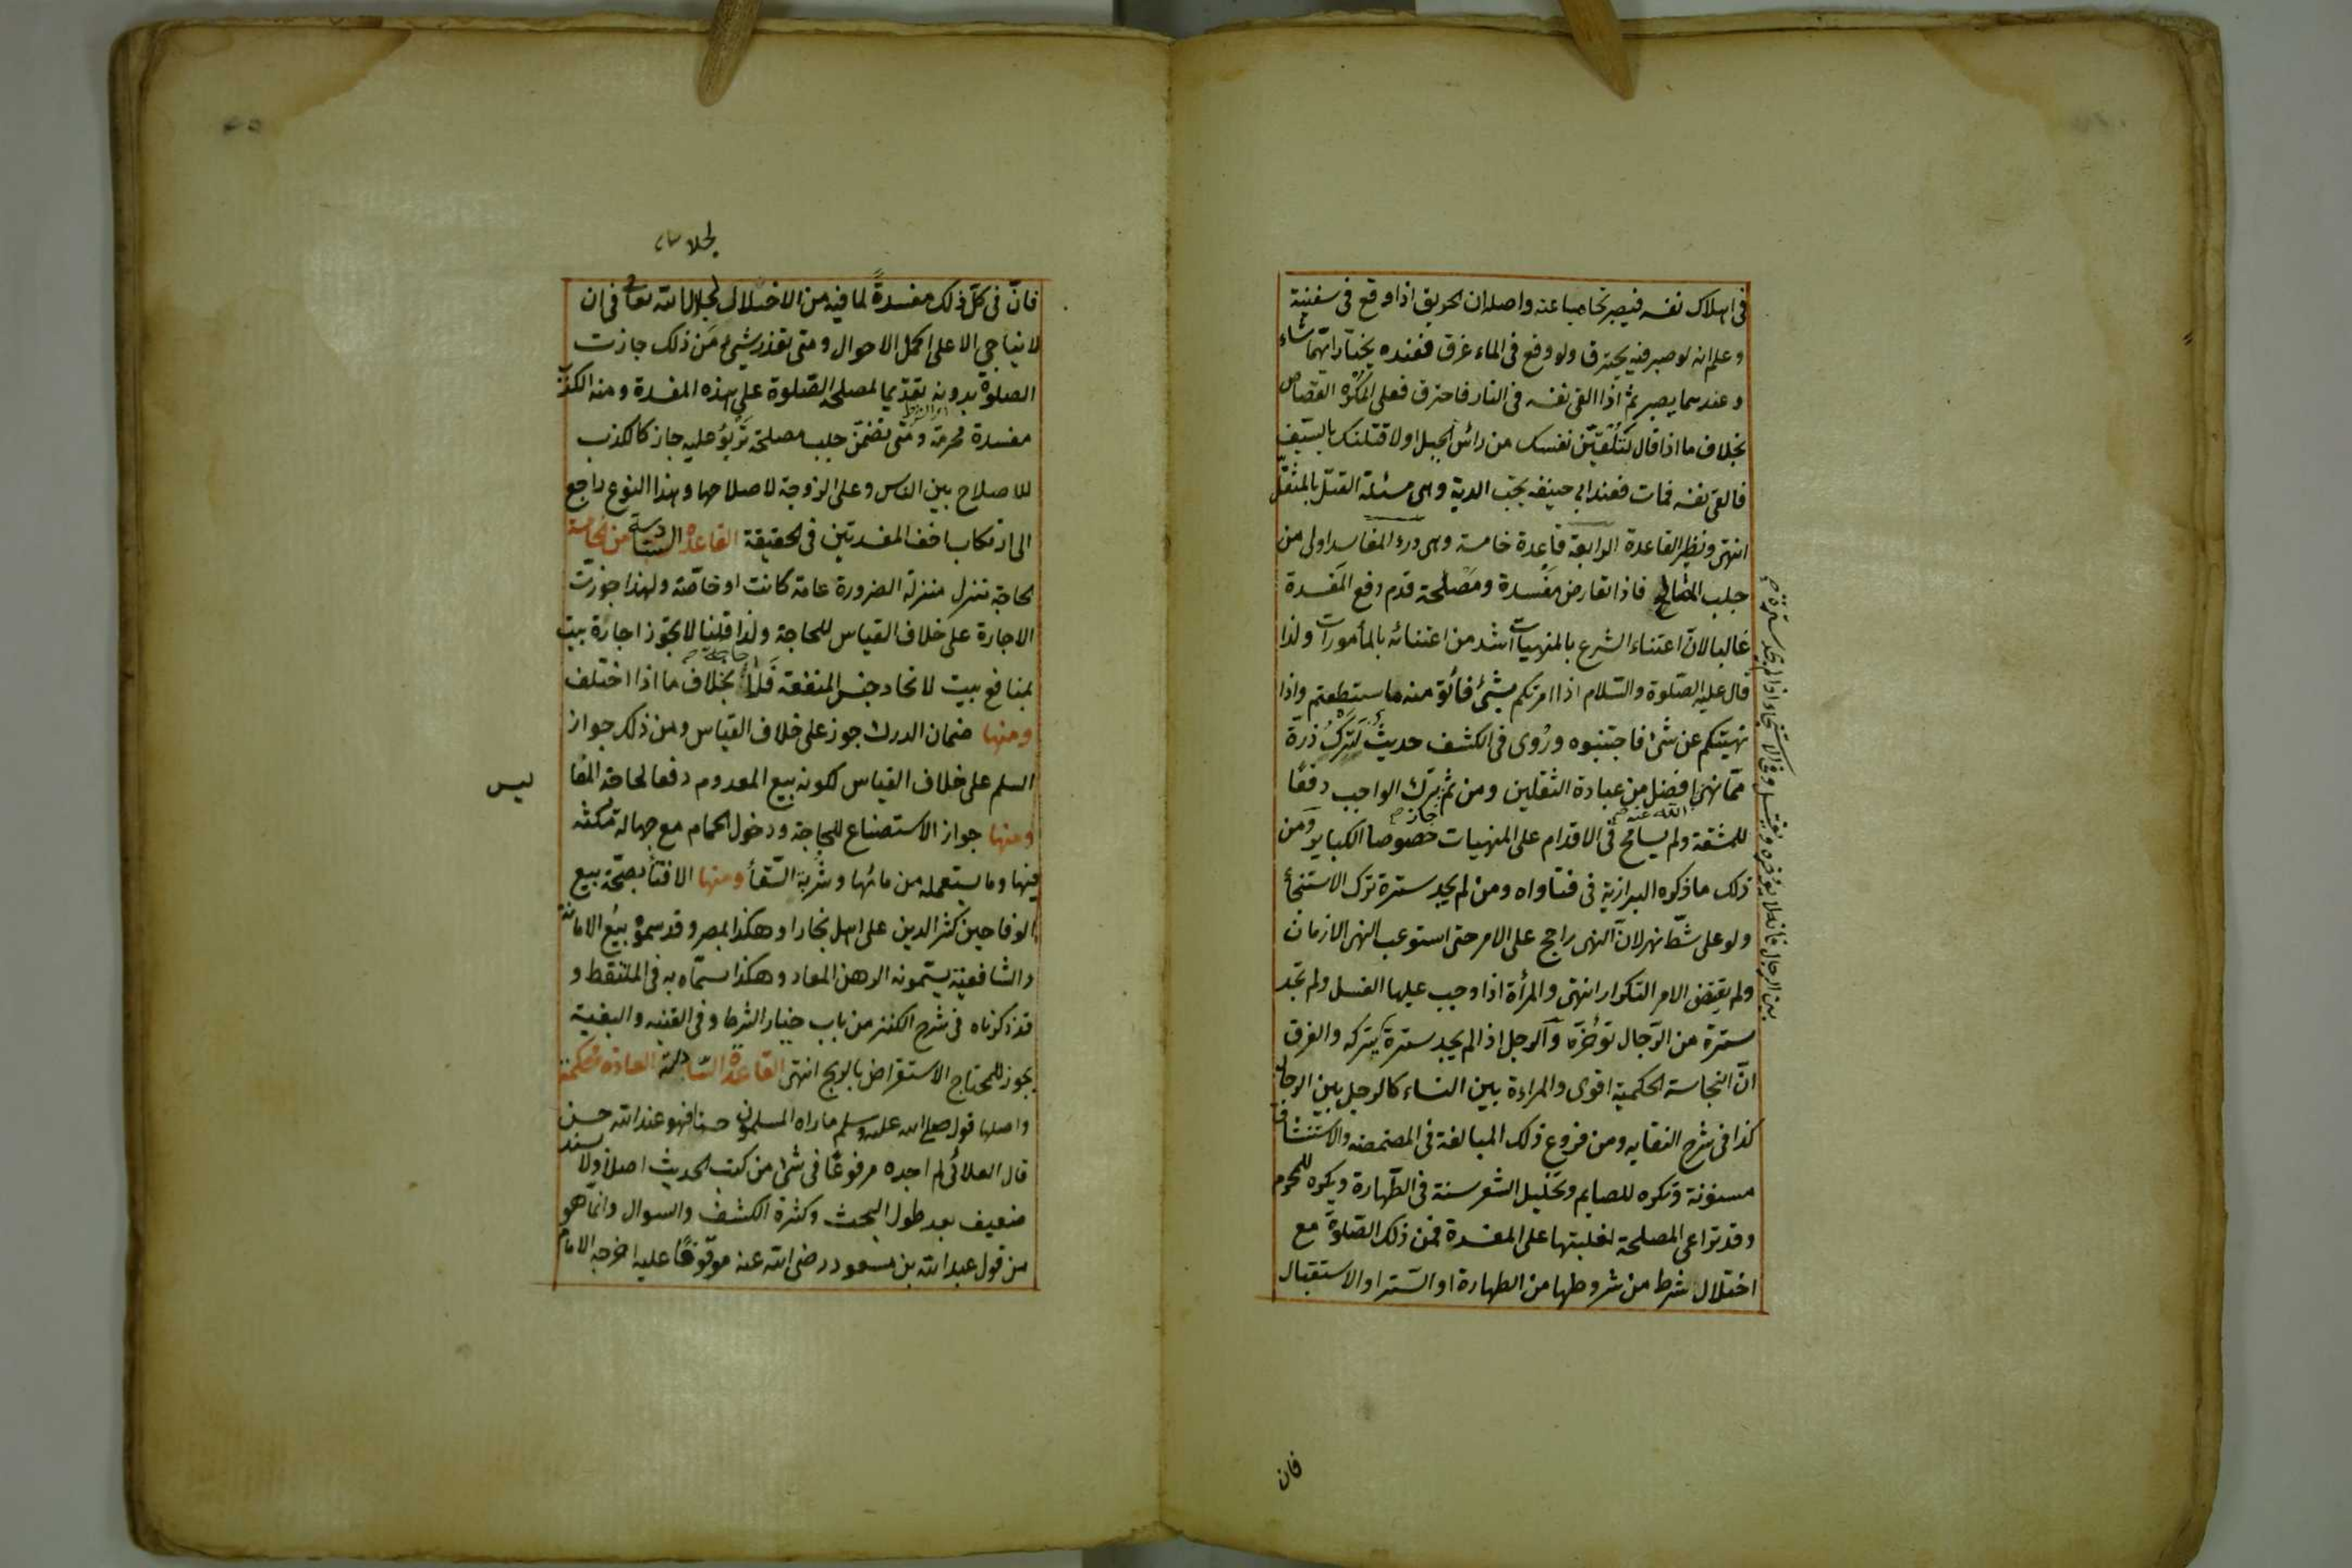 فى اهلاك نفسه فيصير تحاميا عنه واصله ان الحريق اذا وقع فى سفينة
وعلم انه لو صبر فيه يحترق ولو وقع فى الماء غرق فعنده يختار ايهما شاء
وعندهما يصبر ثم اذا القى نفسه فى النار فاحترق فعلى المكره القصاص
بخلاف ما اذا قال لتلقين نفسك من رأس الجبل او لاقتلنك بالسيف
فالقى نفسه فمات فعند ابى حنيفه يجب الدية وهى مسئلة القتل بالمثقل
انتهى ونظير القاعدة الرابعة قاعدة خامسة وهى درء المفاسد اولى من
جلب المصالح فاذا تعارض مفسدة ومصلحة قدم دفع المفسدة
غالبا لان اعتناء الشرع بالمنهيات اشد من اعتنائه بالمأمورات ولذا
قال عليه الصلوة والسلام اذا امرتكم بشئ فأتو منه ما ستطعتم واذا
نهيتكم عن شئ فاجتنبوه وروى فى الكشف حديث لترك ذرة
مما نهى الله عنه افضل من عبادة الثقلين ومن ثم جاز ترك الواجب دفعا
للمشقة ولم يسامح فى الاقدام على المنهيات خصوصا الكباير ومن
ذلك ما ذكره البزازية فى فتاواه ومن لم يجد سترة ترك الاستنجاء
ولو على شط نهر لان النهى راجح على الامر حتى استوعب النهى الازمان
ولم يقتض الامر التكرار انتهى والمرأة اذا وجب عليها الغسل ولم تجد
سترة من الرجال تؤخره والرجل اذا لم يجد سترة يتركه والفرق
ان النجاسة الحكمية اقوى والمراءة بين النساء كالرجل بين الرجال
كذا فى شرح النقايه ومن فروع ذلك المبالغة فى المضمضه والاستنشاق
مسنونة وتكره للصايم وتخليل الشعر سنة فى الطهارة ويكره للمحرم
وقد تراعى المصلحة لغلبتها على المفسدة فمن ذلك الصلوة مع
اختلال شرط من شروطها من الطهارة او الستر او الاستقبال
بين الرجال فانه لا يؤخره ويغتسل وفى الاستنجاء اذا لم يجد سترة
فان
لجلال
فان فى كل ذلك مفسدة لما فيه من الاختلال لجلال الله تعالى فى ان
لا يناجى الا على اكمل الاحوال ومتى تعذر شئ من ذلك جازت
الصلوة بدونه تقديما لمصلحة الصلوة على هذه المفسدة ومنه الكذب
مفسدة محرمة ومتى تضمن جلب مصلحة تربؤ عليه جاز كالكذب
للاصلاح بين الناس وعلى الزوجة لاصلاحها وهذا النوع راجع
الى ارتكاب اخف المفسدتين فى الحقيقة القاعدة السادسة من الخامسة
الحاجة تنزل منزلة الضرورة عامة كانت او خاصة ولهذا جوزت
الاجارة على خلاف القياس للحاجة ولذا قلنا لا تجوز اجارة بيت
بمنافع بيت لاتحاد جنس المنفعة فلا حاجة بخلاف ما اذا اختلف
ومنها ضمان الدرك جوز على خلاف القياس ومن ذلك جواز
السلم على خلاف القياس لكونه بيع المعدوم دفعا لحاجة المفا
ليس
ومنها جواز الاستصناع للحاجة ودخول الحمام مع جهالة مكثه
فيها وما يستعمله من مائها وشربة السقأ ومنها الافتأ بصحة بيع
الوفا حين كثر الدين على اهل بخارا وهكذا بمصر وقد سموه بيع الامانة
والشافعية يسمونه الرهن المعاد وهكذا سماه به فى الملتقط و
قد ذكرناه فى شرح الكنز من باب خيار الشرط وفى القنيه والبغية
يجوز للمحتاج الاستقراض بالربح انتهى القاعدة السادسة العادة محكمة
واصلها قول صلى الله عليه وسلم ما راه المسلمون حسنا فهو عند الله حسن
قال العلائى لم اجده مرفوعا فى شئ من كتب الحديث اصلا ولا بسند
ضعيف بعد طول البحث وكثرة الكشف والسوال وانما هو
من قول عبد الله بن مسعود رضى الله عنه موقوفا عليه اخرجه الامام